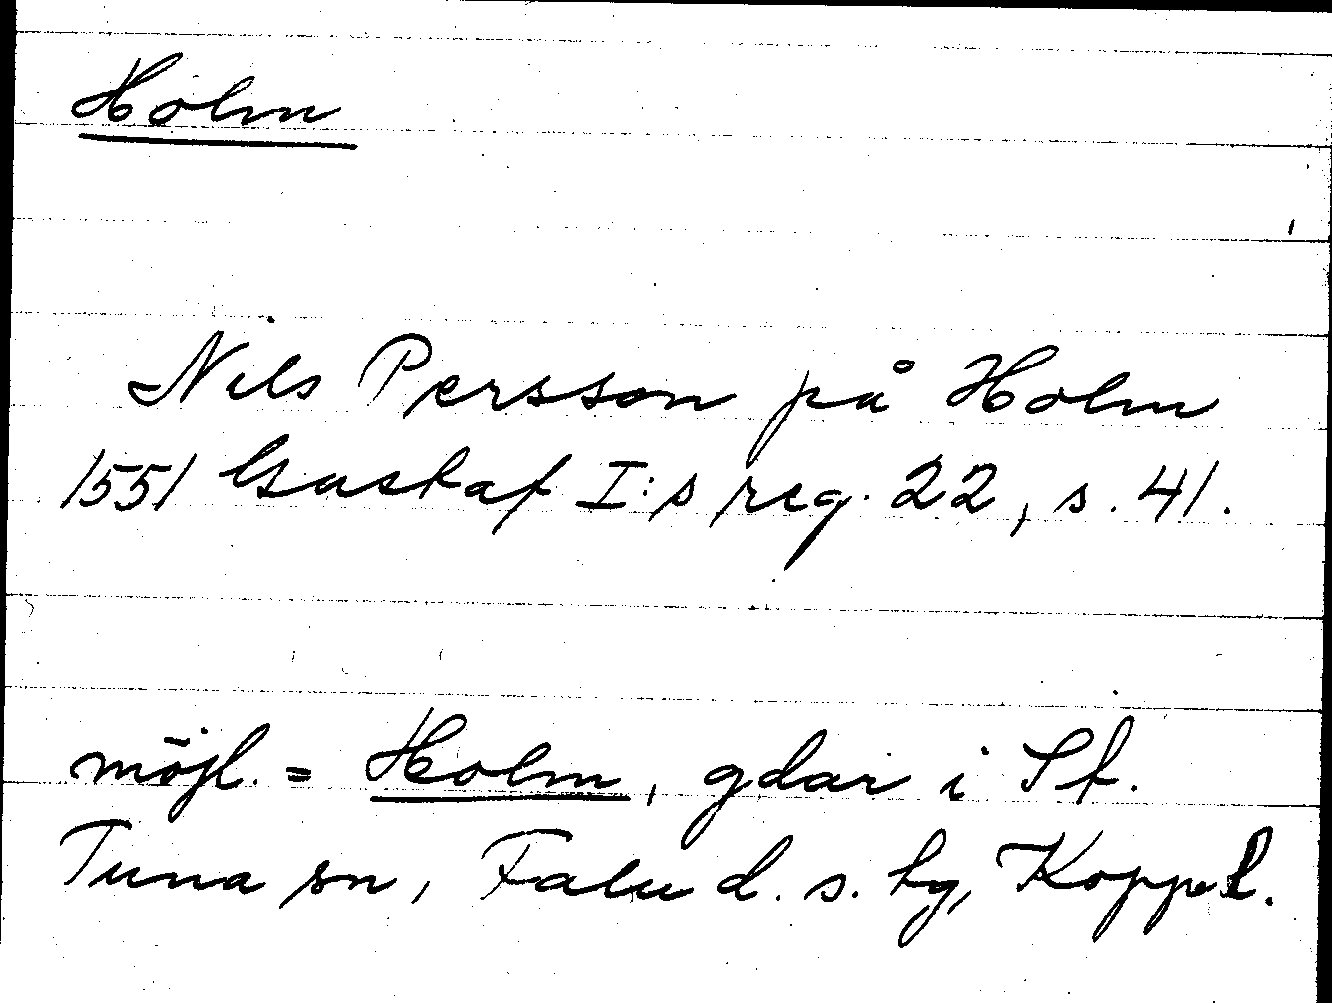 Holm
Nils Persson på Holm
1551 Gustaf I:s reg. 22, s. 41.
möjl. = Holm, gdar i St.
Tuna sn, Falu d. s. hg, Koppel.